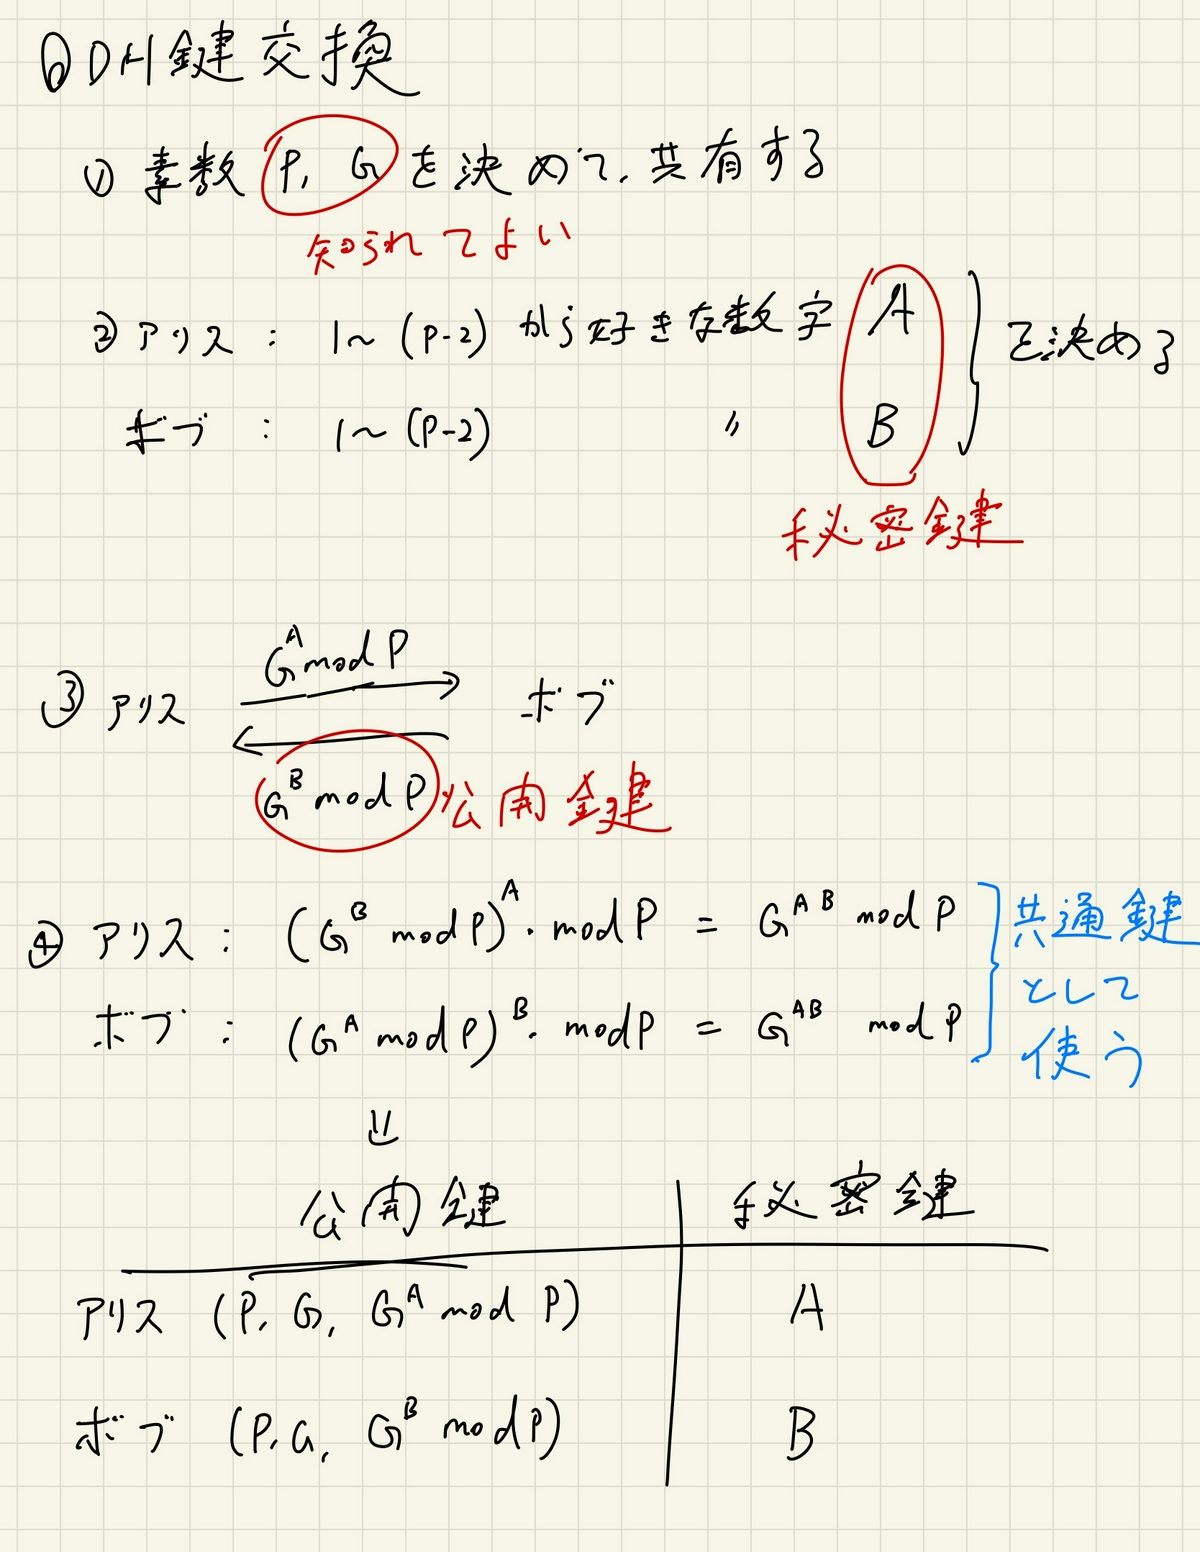 ◎DH鍵交換
① 素数 P, G を決めて、共有する
知られてよい
② アリス : 1~(P-2) から好きな数字 A
ボブ : 1~(P-2) 〃 B
を決める
秘密鍵
G^A mod P
③ アリス ボブ
G^B mod P 公開鍵
④ アリス : (G^B mod P)^A・mod P = G^AB mod P
ボブ : (G^A mod P)^B・mod P = G^AB mod P
共通鍵
として
使う
⇓
公開鍵 秘密鍵
アリス (P, G, G^A mod P) A
ボブ (P, G, G^B mod P) B